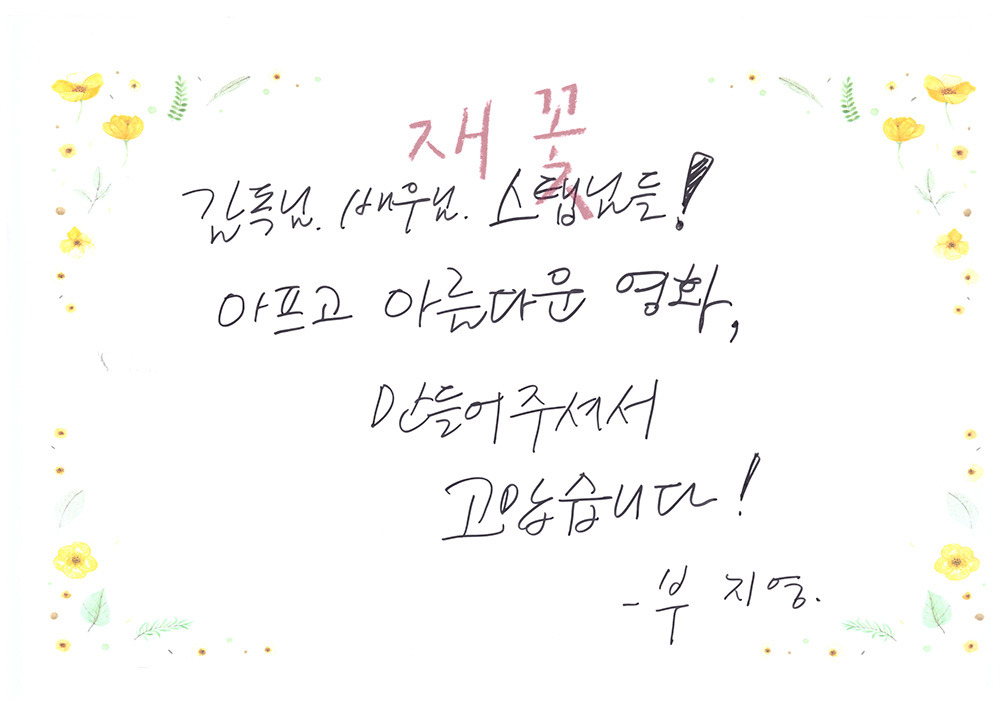 재 꽃
감독님. 배우님. 스탭님들!
아프고 아름다운 영화,
만들어주셔서
고맙습니다!
- 부 지영.